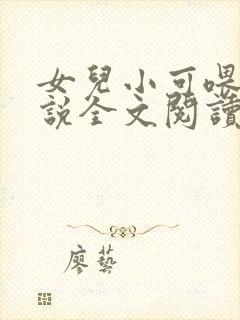 女兒小可喂
說全文閱讀
廖藝